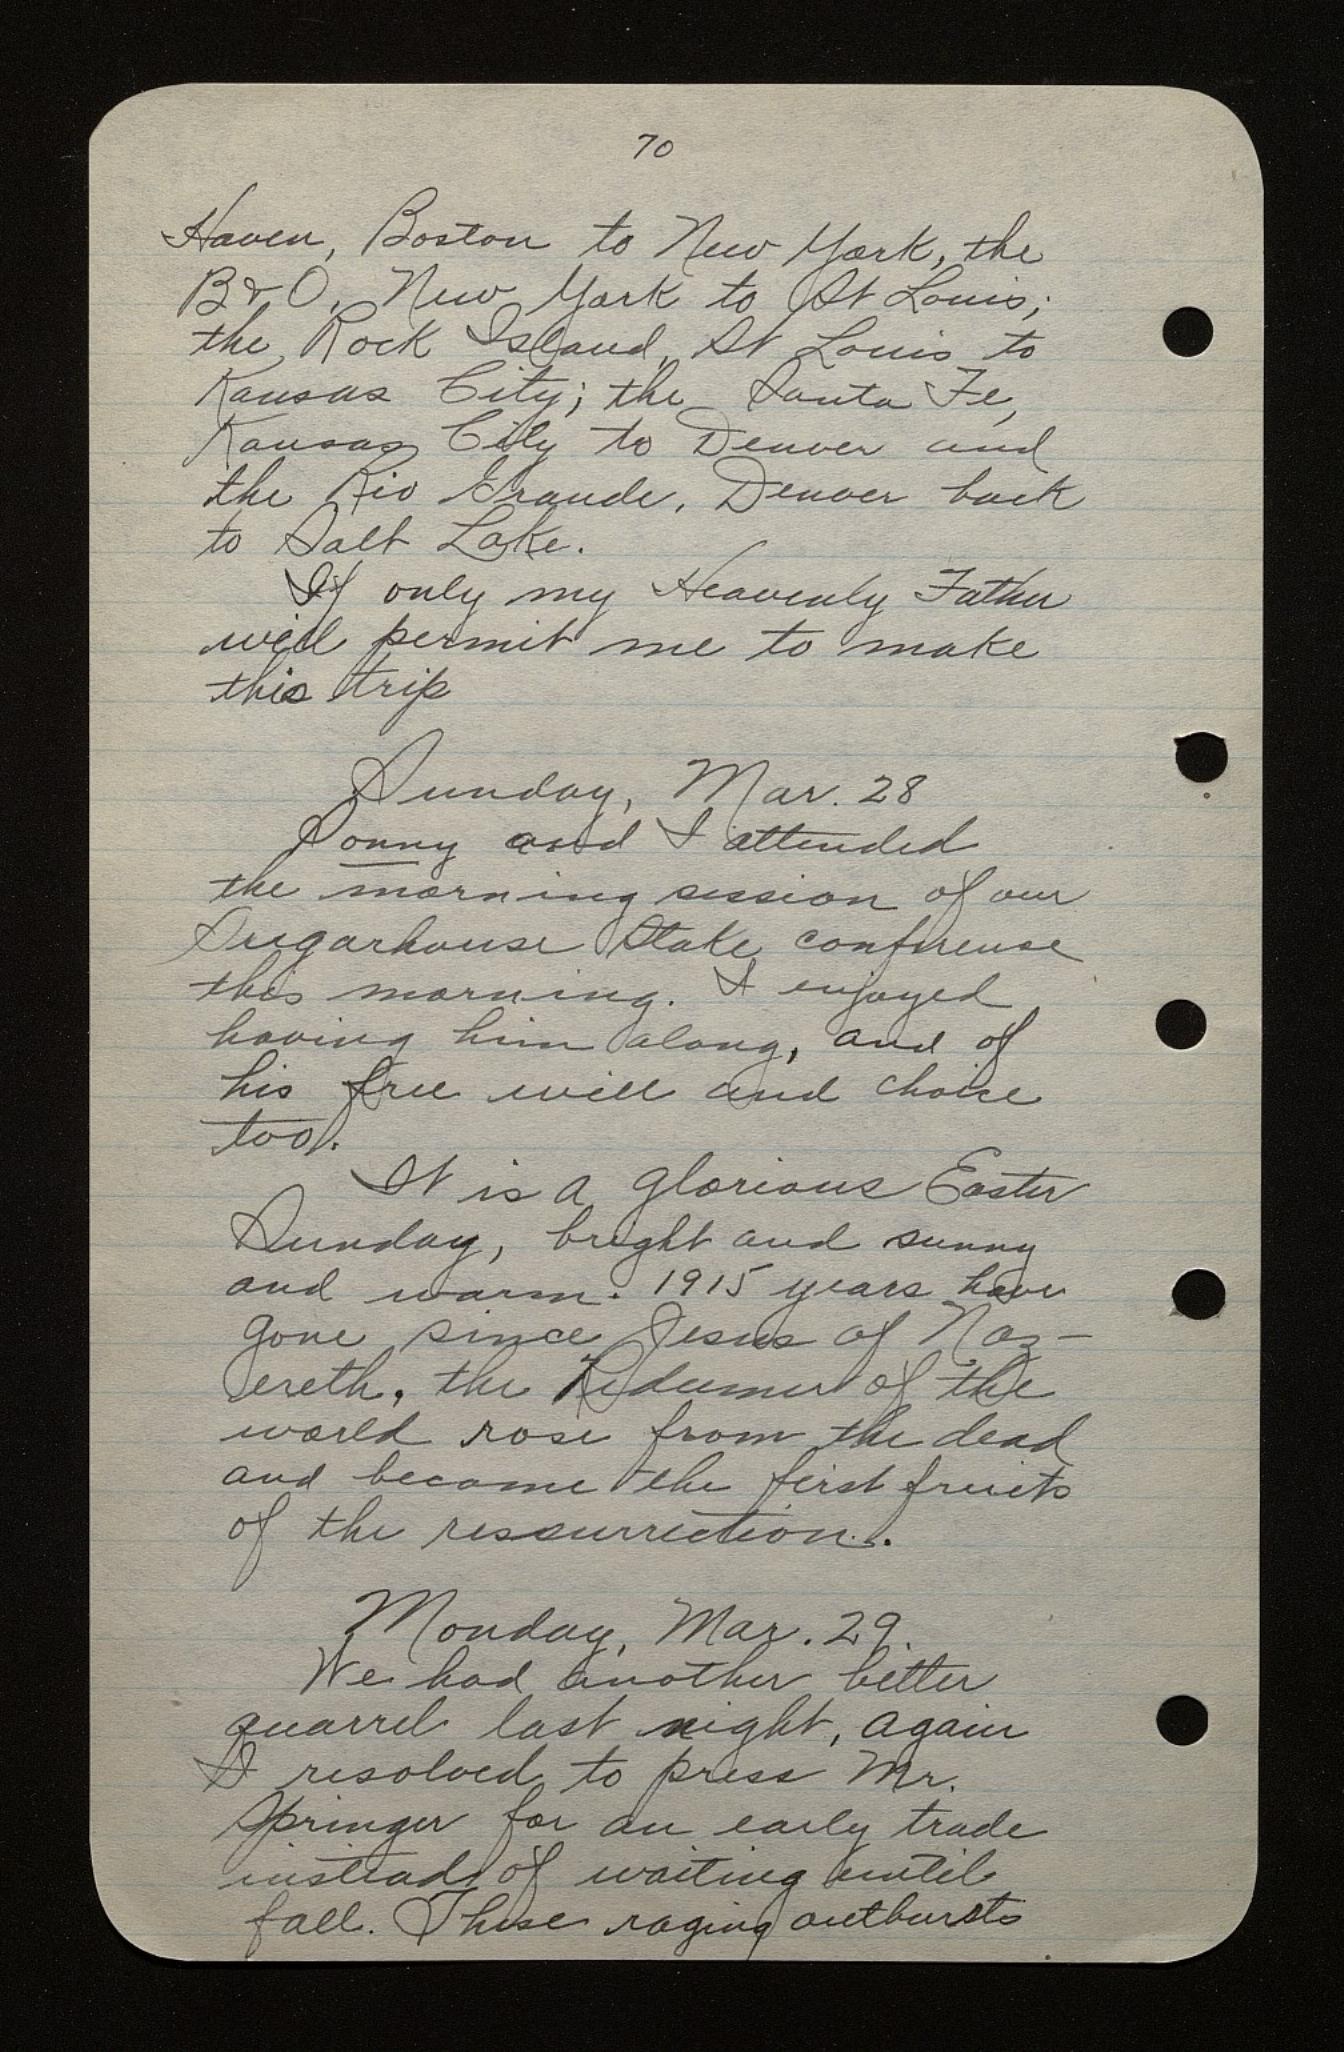 70
Haven, Boston to New York, the
B & O, New York to St Louis;
the Rock Island, St Louis to
Kansas City; the Santa Fe,
Kansas City to Denver and
the Rio Grande, Denver back
to Salt Lake.
If only my Heavenly Father
will permit me to make
this trip
Sunday, Mar. 28
Ponny and I attended
the morning session of our
Sugarhouse Stake conference
this morning. I enjoyed
having him along, and of
his free will and choice
too.
It is a glorious Easter
Sunday, bright and sunny
and warm. 1915 years have
gone since Jesus of Naz-
ereth, the Redeemer of the
world rose from the dead
and became the first fruits
of the ressurrection.
Monday, Mar. 29.
We had another bitter
quarrel last night, again
I resolved to press Mr.
Springer for an early trade
instead of waiting until
fall. These raging outbursts